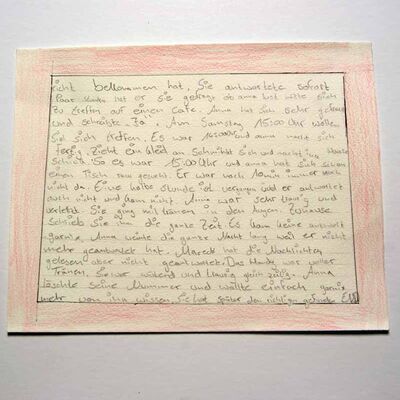 nicht bekommen hat. Sie antwortete sofort
Paar Stunden hat er sie gefragt ob anna Lust hätte sich
zu treffen auf einen Cafe. Anna hat sich sehr gefreut
und schreibte "Ja". Am Samstag 15:00 Uhr wollen
Sie sich treffen. Es war 14:00 Uhr und anna macht sich
fertig. Zieht ein Kleid an Schminkt sich und macht ihre
Schuhe So es war 15:00 Uhr und anna hat sich schon
einen Tisch raus gesucht. Er war nach 10 min immer noch
nicht da. Eine halbe stunde ist vergangen und er antwortet
auch nicht und kam nicht. Anna war sehr traurig und
verletzt. Sie ging mit tränen in den Augen. Zuhause
Schrieb Sie ihn die ganze Zeit. Es kam keine antwort
garnix. Anna weinte die ganze Nacht lang weil er nicht
mehr geantwortet hat. Mareck hat die Nachrichten
gelesen aber nicht geantwortet. Das Handy war voller
Tränen. Sie war wütend und traurig gleich zeitig. Anna
löschte seine Nummer und wollte einfach garnix
mehr von ihn wissen. Sie hat später den richtigen gefunden Ende